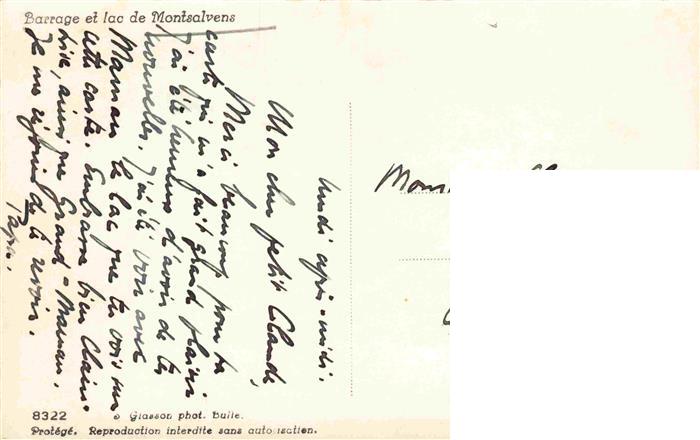 Barrage et lac de Montsalvens
Lundi après-midi.
Mon cher petit Claude,
Merci beaucoup pour ta
carte qui m'a fait grand plaisir
J'ai été heureux d'avoir de tes
nouvelles. J'ai été voir avec
Maman le lac que tu vois sur
cette carte. Embrasse bien Claire-
Lise, ainsi que Grand-Maman.
Je me réjouis de te revoir.
Papa.
8322 © Glasson phot. Bulle.
Protégé. Reproduction interdite sans autorisation.